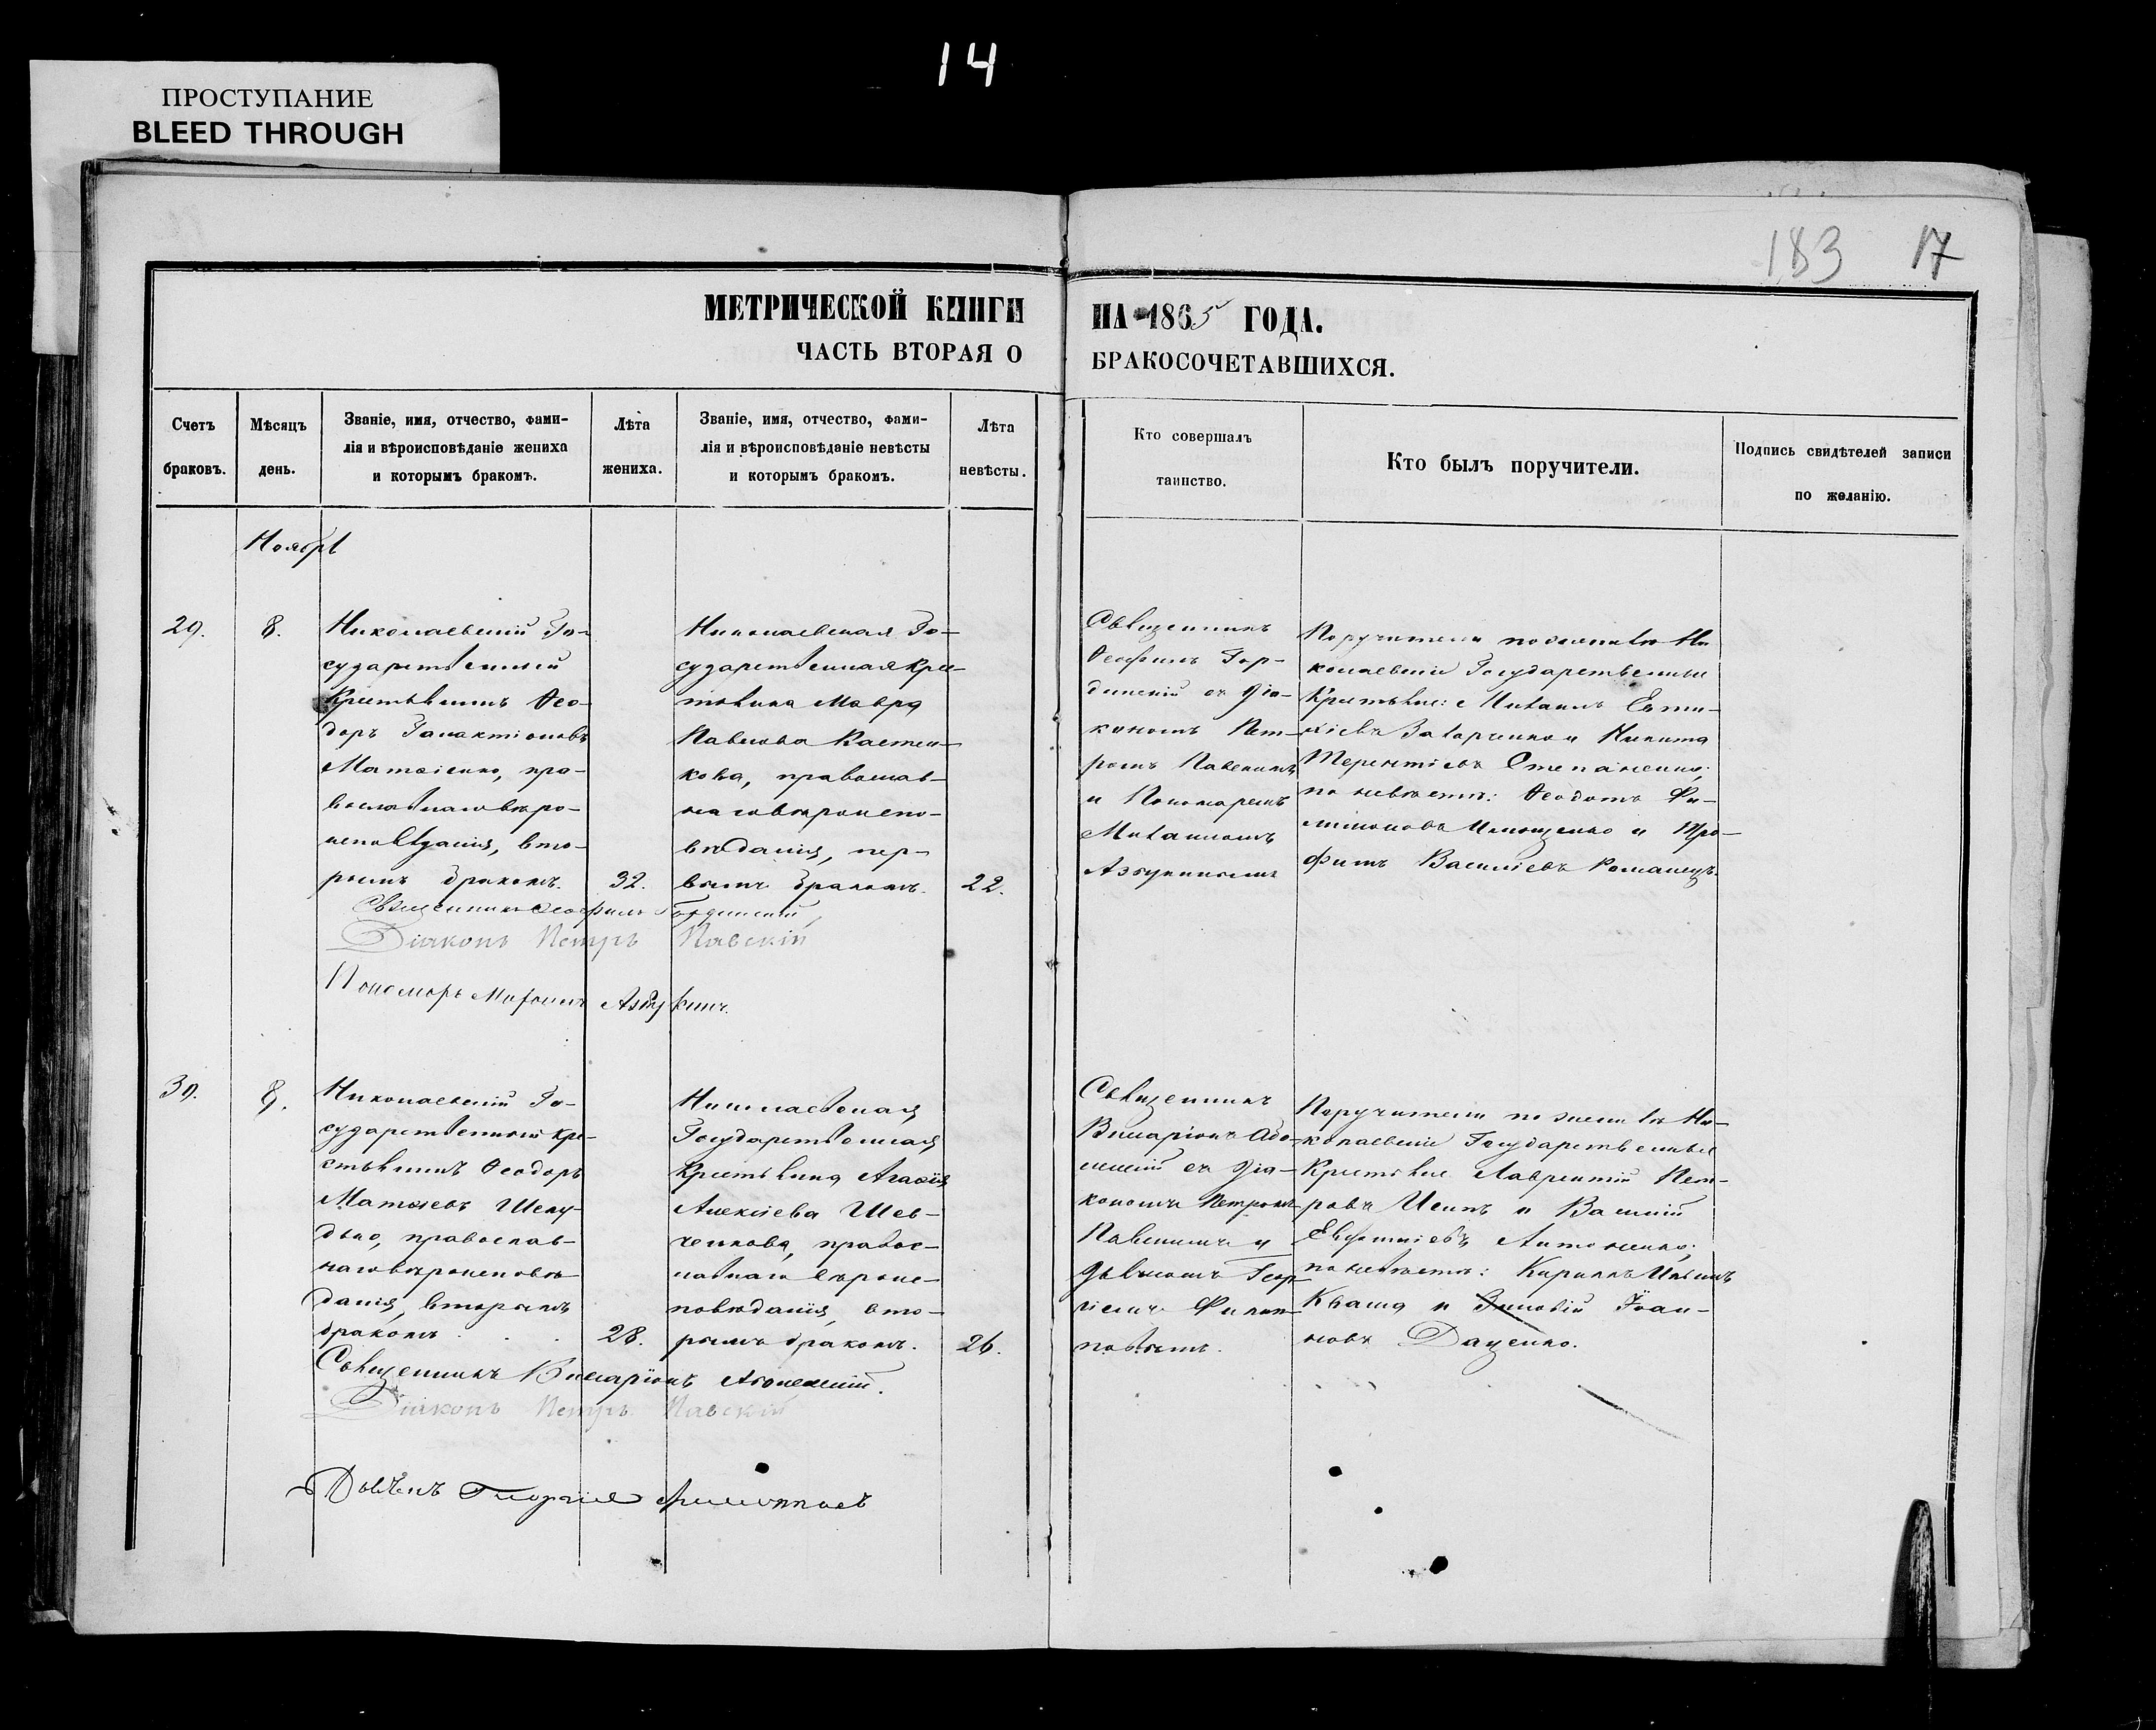 14
ПРОСТУПАНИЕ
BLEED THROUGH
183 17
МЕТРИЧЕСКОЙ КНИГИ НА 1865 ГОДА.
ЧАСТЬ ВТОРАЯ О БРАКОСОЧЕТАВШИХСЯ.
Счетъ
браковъ.
Мѣсяцъ
день.
Званіе, имя, отчество, фами-
лія и вѣроисповѣданіе жениха
и которымъ бракомъ.
Лѣта
жениха.
Званіе, имя, отчество, фами-
лія и вѣроисповѣданіе невѣсты
и которымъ бракомъ.
Лѣта
невѣсты.
Кто совершалъ
таинство.
Кто былъ поручители.
Подпись свидѣтелей записи
по желанію.
Ноябрь
29.
8.
Николаевскій Го-
сударственный
Крестьянинъ Ѳео-
доръ Галактіоновъ
Матѳіенко, пра-
вославнаго вѣро-
исповѣданія, вто-
рымъ бракомъ.
32.
Николаевская Го-
сударственная Кре-
стьянка Мавра
Павлова Костен-
кова, православ-
наго вѣроиспо-
вѣданія, пер-
вымъ бракомъ.
22.
Священникъ
Ѳеофилъ Гор-
динскій съ Діа-
кономъ Пет-
ромъ Павскимъ
и Пономаремъ
Михаиломъ
Азбукинымъ
Поручители по женихѣ Ни-
колаевскіе Государственные
Крестьяне: Михаилъ Евти-
хіевъ Захарченко и Никита
Терентіевъ Степаненко;
по невѣстѣ: Ѳеодотъ Фи-
лимоновъ Ильющенко и Тро-
фимъ Василіевъ Романецъ.
Священникъ Ѳеофилъ Гординскій
Діаконъ Петръ Павскій
Пономарь Михаилъ Азбукинъ.
30.
8.
Николаевскій Го-
сударственный Кре-
стьянинъ Ѳеодоръ
Матѳіевъ Шелу-
дько, православ-
наго вѣроисповѣ-
данія, вторымъ
бракомъ . . .
28.
Николаевская
Государственная
Крестьянка Агаѳія
Алексіева Шев-
ченкова, правос-
лавнаго вѣроис-
повѣданія, вто-
рымъ бракомъ.
26.
Священникъ
Виссаріонъ
съ Діа-
кономъ Петромъ
Павскимъ и
Дьячкомъ Геор-
гіемъ Филип-
повымъ.
Поручители по женихѣ Ни-
колаевскіе Государственные
Крестьяне Лаврентій Пет-
ровъ и Василій
Евфиміевъ Антоненко;
по невѣстѣ: Кириллъ Ильинъ
Кваша и Зиновій Іоан-
новъ Даценко.
Священникъ Виссаріонъ
Діаконъ Петръ Павскій
Дьячекъ Георгій Филипповъ